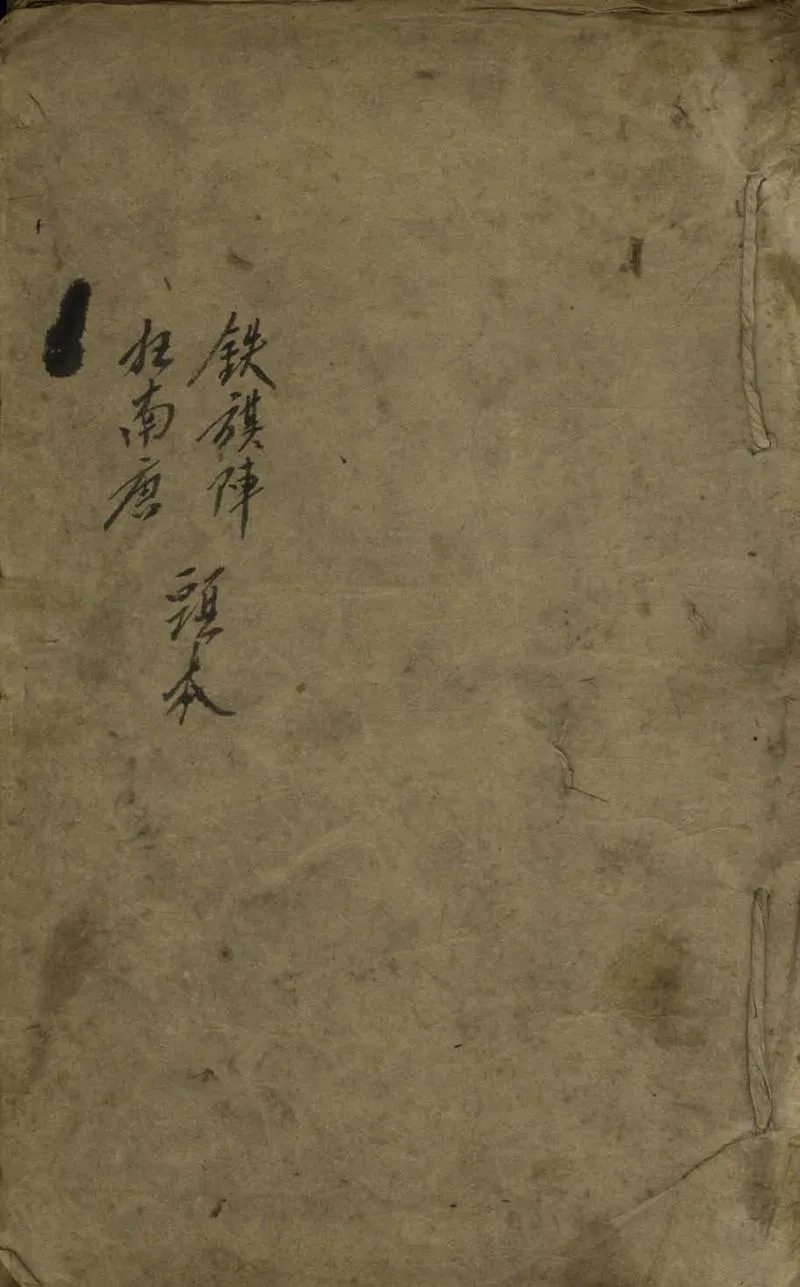 鉄旗陣
狂南唐
頭本